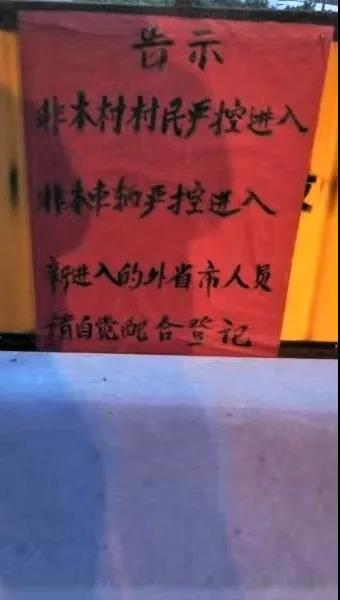 告示
非本村村民严控进入
非本车辆严控进入
新进入的外省市人员
请自觉配合登记